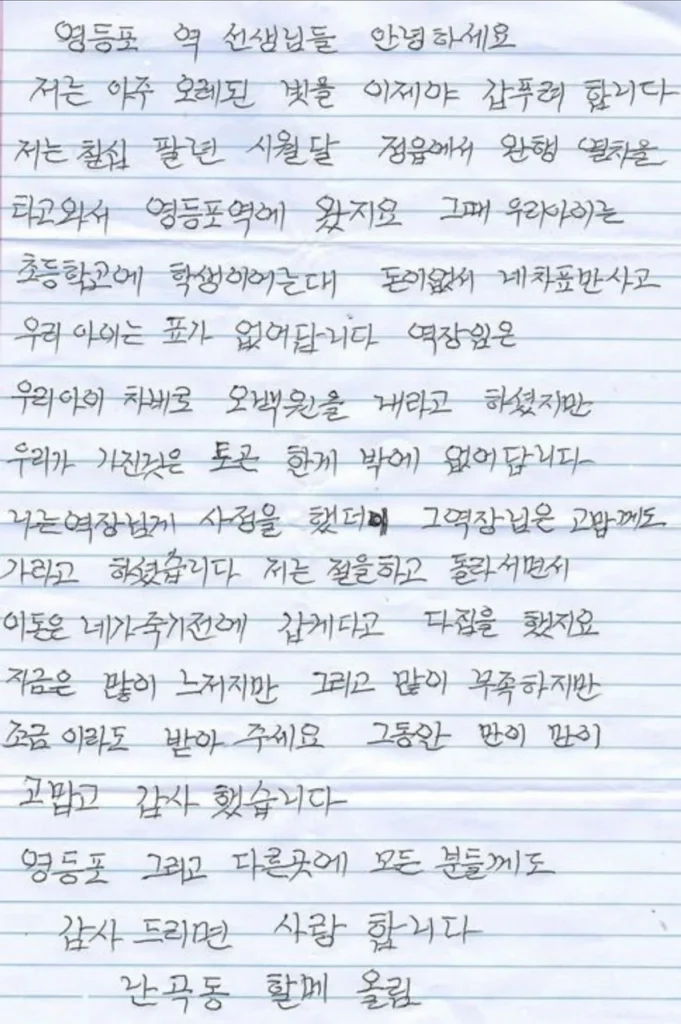 영등포 역 선생님들 안녕하세요
저는 아주 오레된 빛을 이제야 갑푸려 합니다
저는 칠십 팔년 시월달 정읍에서 완행 열차을
타고와서 영등포역에 왔지요 그때 우리아이는
초등학고에 학생이어는대 돈이없서 네차표만사고
우리 아이는 표가 없어답니다 역장임은
우리아이 차비로 오백원을 내라고 하셨지만
우리가 가진것은 토큰 한게 밖에 없어답니다
나는역장님게 사정을 했더이 그역장님은 고맙께도
가라고 하셨습니다 저는 절을하고 돌라서면서
이돈은 네가죽기전에 갑게다고 다짐을 했지요
지금은 많이 느저지만 그리고 많이 부족하지만
조금 이라도 받아 주세요 그동안 만이 만이
고맙고 감사 했습니다
영등포 그리고 다른곳에 모든 분들께도
감사 드리면 사랑 합니다
난곡동 할메 올림